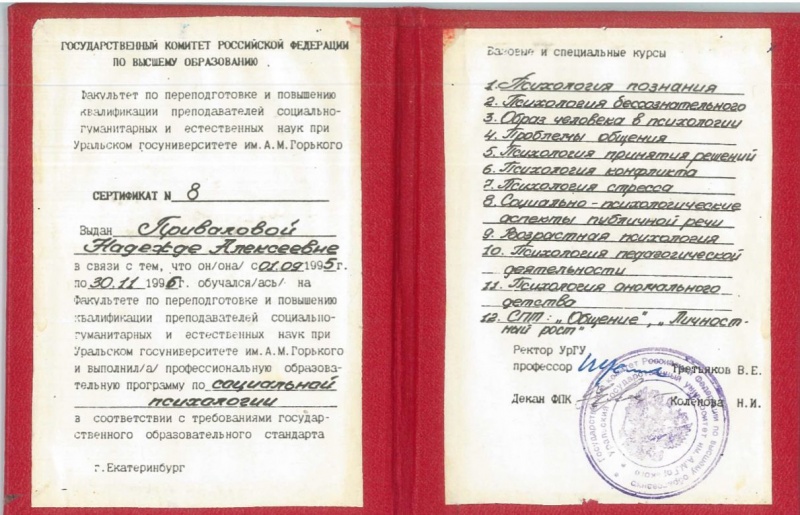 ГОСУДАРСТВЕННЫЙ КОМИТЕТ РОССИЙСКОЙ ФЕДЕРАЦИИ
ПО ВЫСШЕМУ ОБРАЗОВАНИЮ
Факультет по переподготовке и повышению
квалификации преподавателей социально-
гуманитарных и естественных наук при
Уральском госуниверситете им.А.М.Горького
СЕРТИФИКАТ № 8
Выдан Приваловой
Надежде Алексеевне
в связи с тем, что он/она/ с 01.09 1995г.
по 30.11 1996г. обучался/ась/ на
Факультете по переподготовке и повышению
квалификации преподавателей социально-
гуманитарных и естественных наук при
Уральском госуниверситете им.А.М.Горького
и выполнил/а/ профессиональную образова-
тельную программу по социальной
психологии
в соответствии с требованиями государ-
ственного образовательного стандарта
г.Екатеринбург
Базовые и специальные курсы
1. Психология познания
2. Психология бессознательного
3. Образ человека в психологии
4. Проблемы общения
5. Психология принятия решений
6. Психология конфликта
7. Психология стресса
8. Социально-психологические
аспекты публичной речи
9. Возрастная психология
10. Психология педагогической
деятельности
11. Психология аномального
детства
12. СПТ: „Общение", „Личност-
ный рост"
Ректор УрГУ
профессор Третьяков В.Е.
Декан ФПК Колекова Н.И.